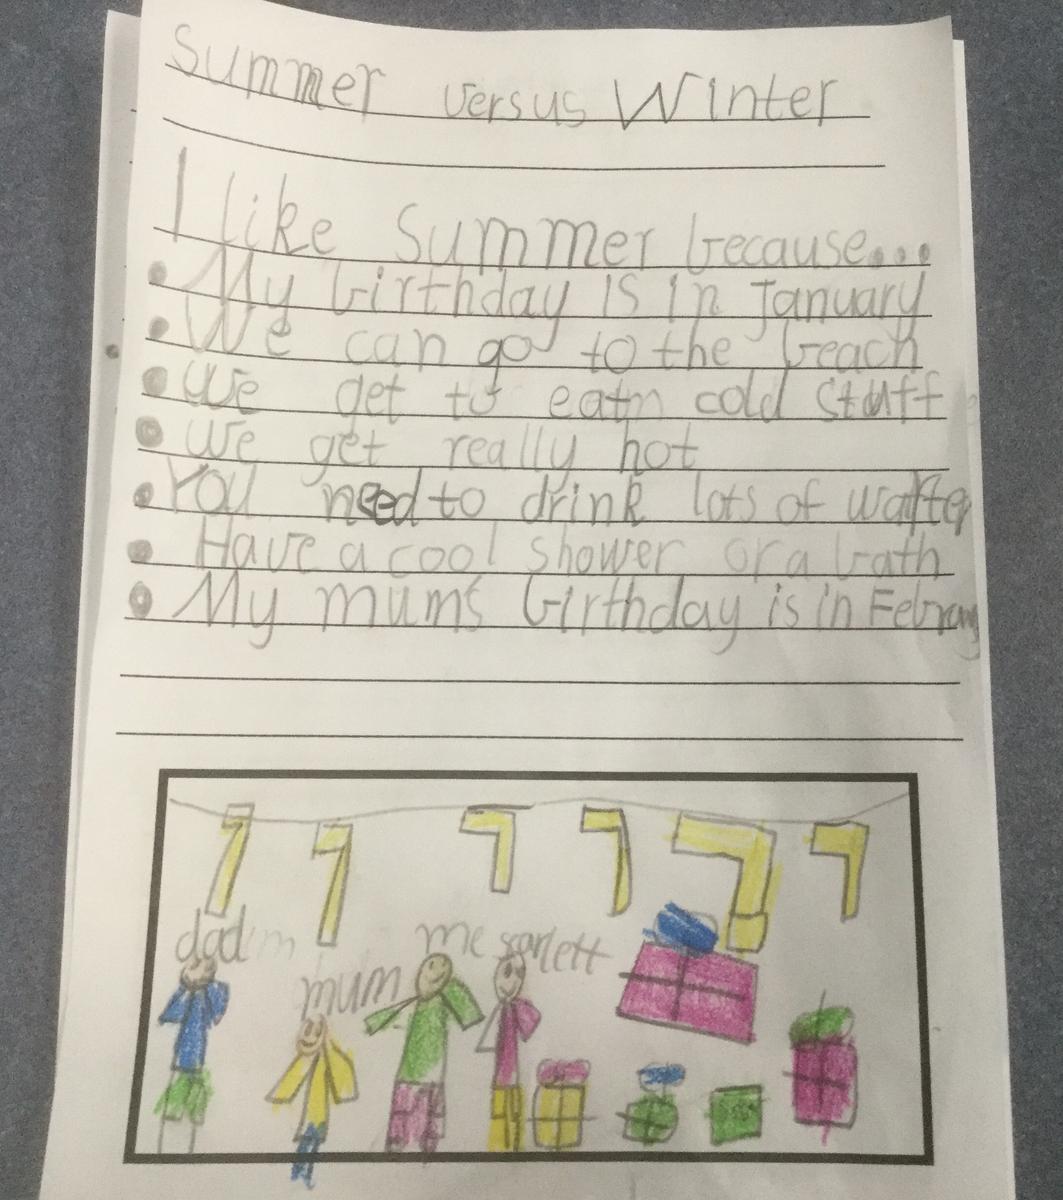 Summer versus Winter
I like Summer because...
• My birthday is in January
• We can go to the beach
• We get to eat cold stuff
• We get really hot
• You need to drink lots of water
• Have a cool shower or a bath
• My mum's birthday is in February
7 7 7 7 7 7
dad mum me scarlett